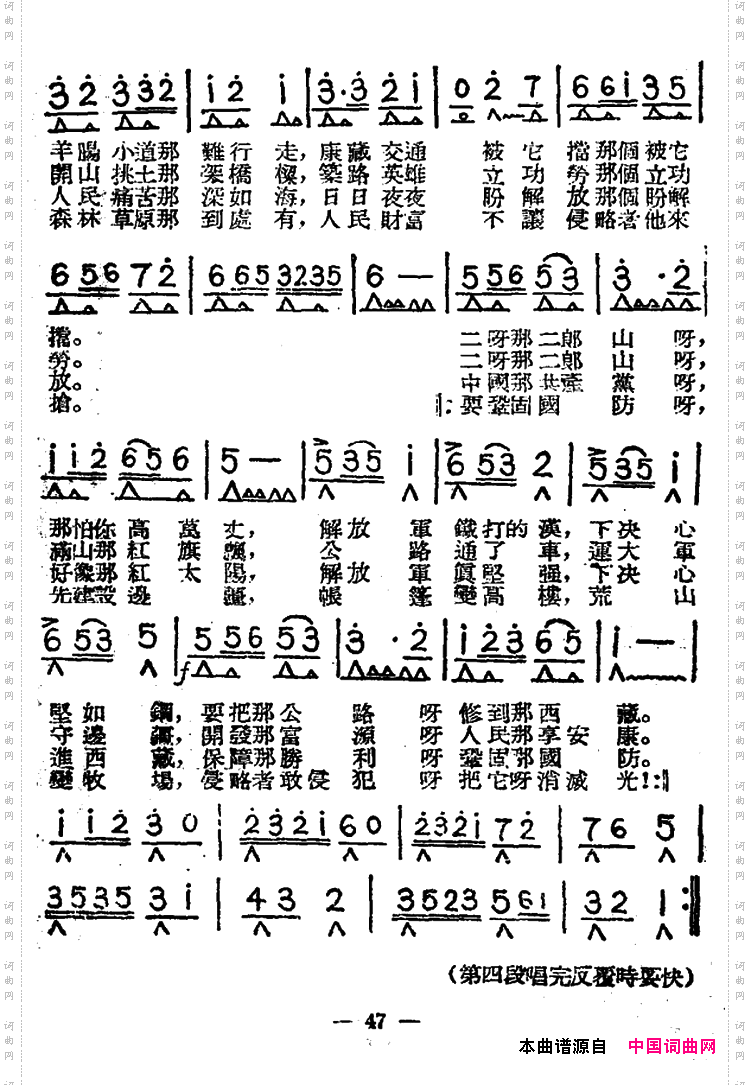 3 2 3 3 2 | i 2 i | 3 · 3 2 i | 0 2 7 | 6 6 i 3 5 |
羊腸小道那 難行 走,康藏交通 被它 擋那個被它
開山挑土那 架橋 樑,築路英雄 立功 勞那個立功
人民痛苦那 深如 海,日日夜夜 盼解 放那個盼解
森林草原那 到處 有,人民財富 不讓 侵略者他來
6 5 6 7 2 | 6 6 5 3 2 3 5 | 6 — | 5 5 6 5 3 | 3 · 2 |
擋。 二呀那二郎 山 呀,
勞。 二呀那二郎 山 呀,
放。 中國那共產 黨 呀,
搶。 |:要鞏固國 防 呀,
i i 2 6 5 6 | 5 — | 5 3 5 i | 6 5 3 2 | 5 3 5 i |
那怕你高 萬 丈, 解放 軍 鐵打的 漢,下决 心
滿山那紅 旗 飄, 公 路 通了 車,運大 軍
好像那紅 太 陽, 解放 軍 眞堅 强,下决 心
先建設邊 疆, 帳 篷 變高 樓,荒 山
6 5 3 5 | f 5 5 6 5 3 | 3 · 2 | i 2 3 6 5 | i — |
堅如 鋼,要把那公 路 呀 修到那西 藏。
守邊 疆,開發那富 源 呀 人民那享安 康。
進西 藏,保障那勝 利 呀 鞏固那國 防。
變牧 場,侵略者敢侵 犯 呀 把它呀消滅 光!:|
i i 2 3 0 | 2 3 2 i 6 0 | 2 3 2 i 7 2 | 7 6 5 |
3 5 3 5 3 i | 4 3 2 | 3 5 2 3 5 6 1 | 3 2 1 :|
(第四段唱完反覆時要快)
— 47 —
本曲谱源自 中国词曲网
词曲网